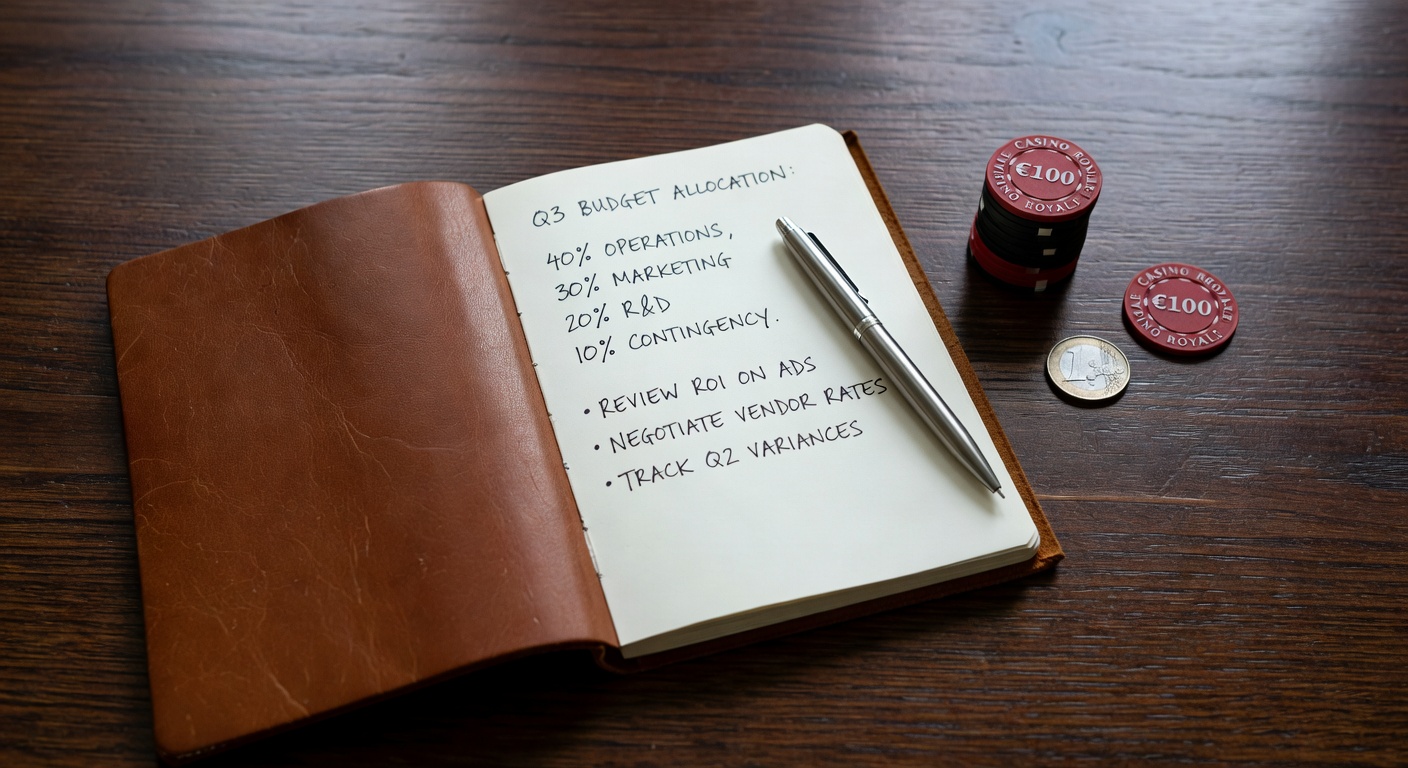 Q3 BUDGET ALLOCATION:
40% OPERATIONS,
30% MARKETING
20% R&D
10% CONTINGENCY.
• REVIEW ROI ON ADS
• NEGOTIATE VENDOR RATES
• TRACK Q2 VARIANCES
CASINO
€100
ROYALE
CASINO
€100
ROYALE
1